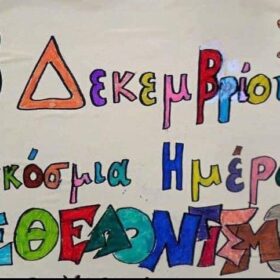 Δεκεμβρίο
κόσμια Ημέρα
ΕΘΕΛΟΝΤΙΣΜ